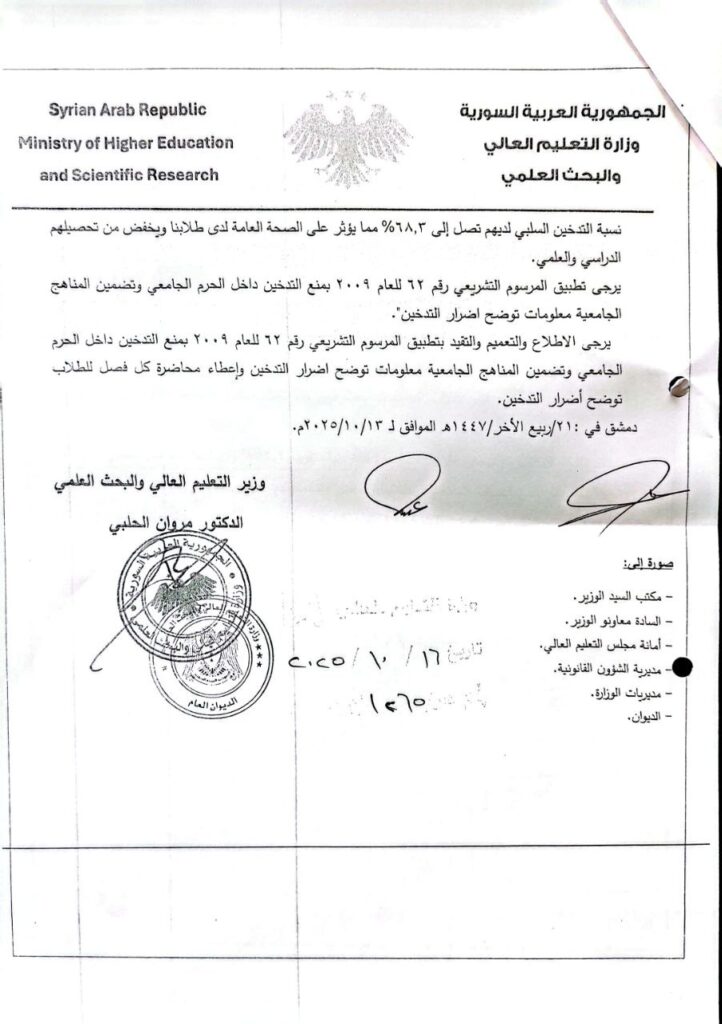 Syrian Arab Republic
Ministry of Higher Education
and Scientific Research
الجمهورية العربية السورية
وزارة التعليم العالي
والبحث العلمي
نسبة التدخين السلبي لديهم تصل إلى ٦٨,٣% مما يؤثر على الصحة العامة لدى طلابنا ويخفض من تحصيلهم
الدراسي والعلمي.
يرجى تطبيق المرسوم التشريعي رقم ٦٢ للعام ٢٠٠٩ بمنع التدخين داخل الحرم الجامعي وتضمين المناهج
الجامعية معلومات توضح اضرار التدخين".
يرجى الاطلاع والتعميم والتقيد بتطبيق المرسوم التشريعي رقم ٦٢ للعام ٢٠٠٩ بمنع التدخين داخل الحرم
الجامعي وتضمين المناهج الجامعية معلومات توضح اضرار التدخين وإعطاء محاضرة كل فصل للطلاب
توضح أضرار التدخين.
دمشق في :٢١/ربيع الأخر/١٤٤٧هـ الموافق لـ ٢٠٢٥/١٠/١٣م.
وزير التعليم العالي والبحث العلمي
الدكتور مروان الحلبي
الجمهورية العربية السورية
وزارة التعليم العالي والبحث العلمي
الديوان العام
صورة إلى:
– مكتب السيد الوزير.
– السادة معاونو الوزير.
– أمانة مجلس التعليم العالي.
– مديرية الشؤون القانونية.
– مديريات الوزارة.
– الديوان.
تاريخ ١٦ / ١٠ / ٢٠٢٥
١٢٦٥